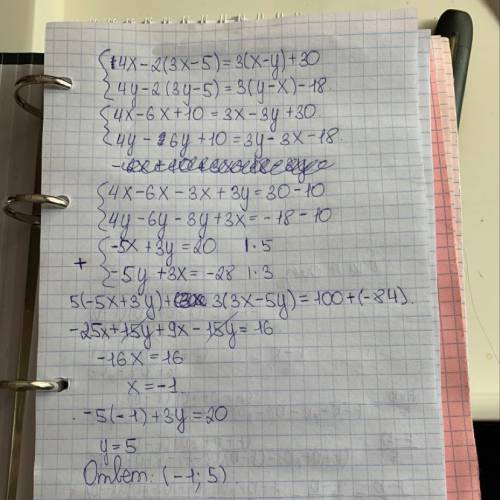 4x-2(3x-5)=3(x-y)+30
4y-2(3y-5)=3(y-x)-18
4x-6x+10=3x-3y+30
4y-6y+10=3y-3x-18
4x-6x-3x+3y=30-10
4y-6y-3y+3x=-18-10
-5x+3y=20 |·5
+ -5y+3x=-28 |·3
5(-5x+3y)+3(3x-5y)=100+(-84).
-25x+15y+9x-15y=16
-16x=16
x=-1
-5(-1)+3y=20
y=5
Ответ: (-1;5)